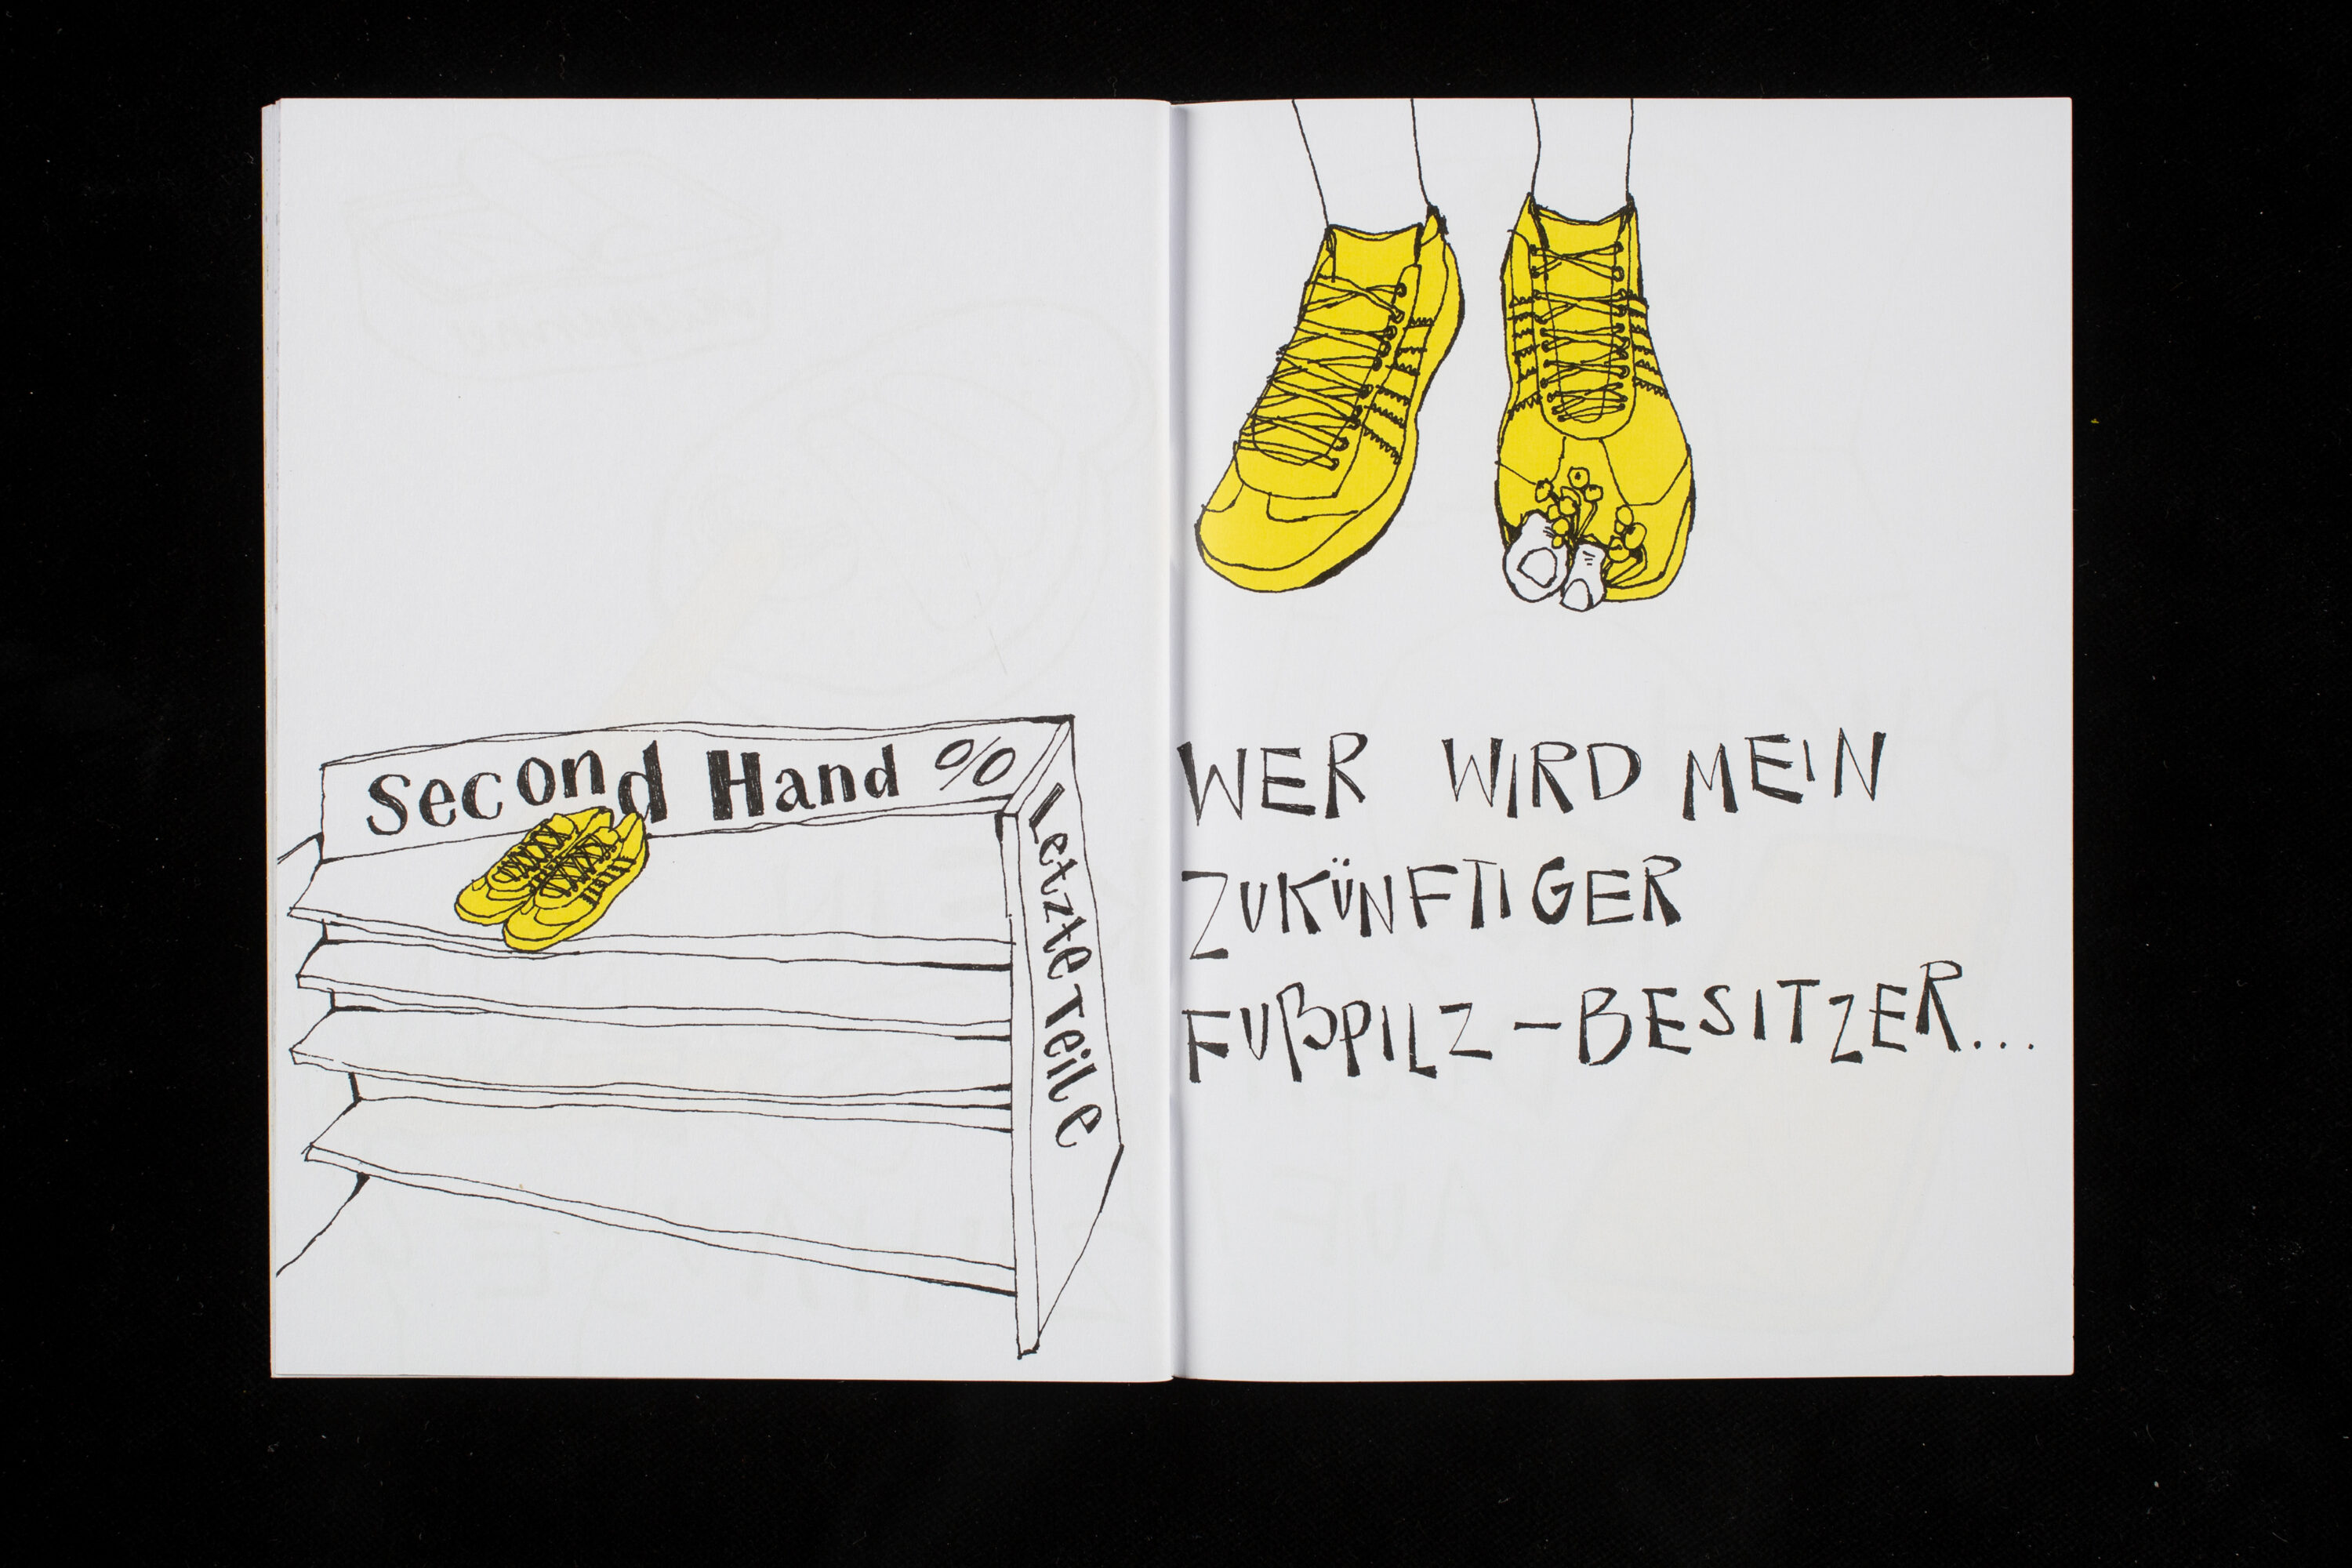 Second Hand %
Letzte Teile
WER WIRD MEIN
ZUKÜNFTIGER
FUßPILZ-BESITZER...